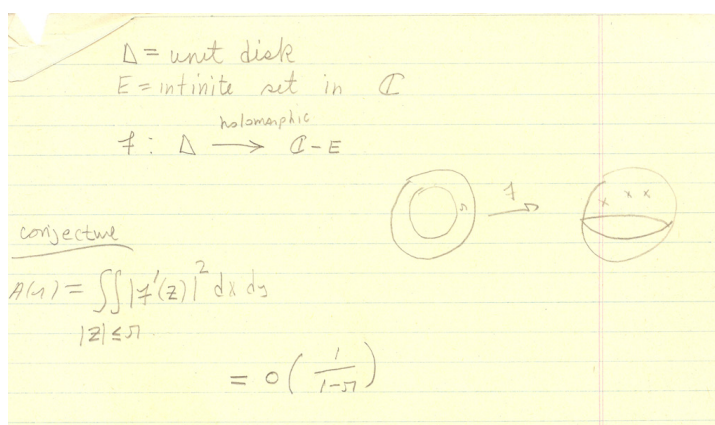 Δ = unit disk
E = infinite set in ℂ
holomorphic
f : Δ ⟶ ℂ - E
r f
x x x
conjecture
A(r) = ∫∫ |f'(z)|² dx dy
|z| ≤ r
= o( 1/(1-r) )